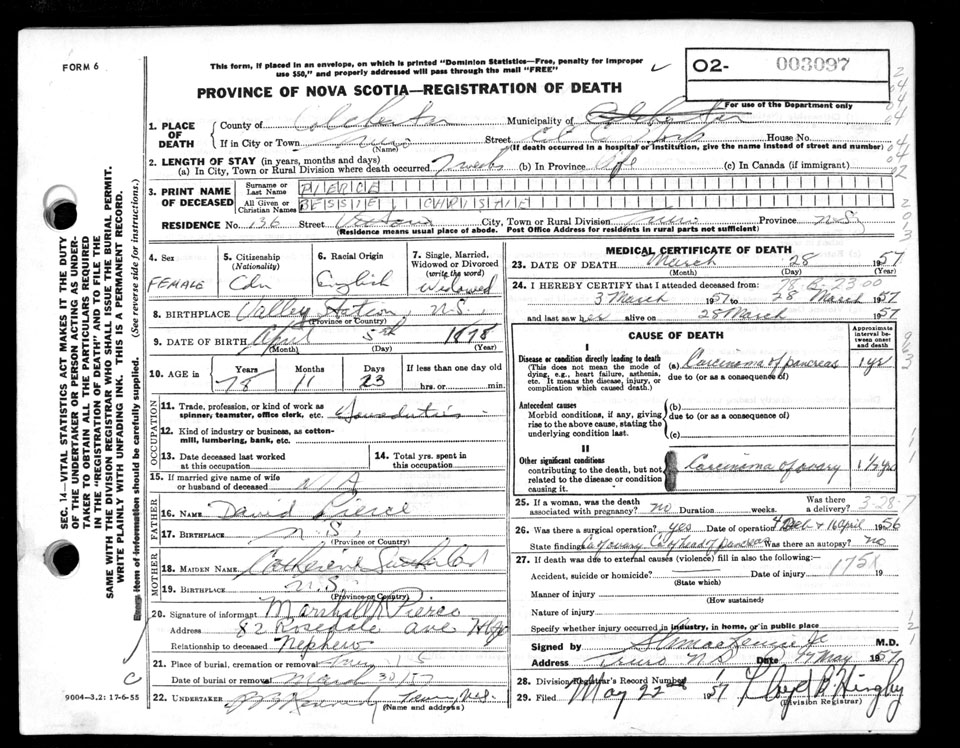 FORM 6
This form, if placed in an envelope, on which is printed "Dominion Statistics—Free, penalty for improper
use $50," and properly addressed will pass through the mail "FREE"
02- 003097
PROVINCE OF NOVA SCOTIA—REGISTRATION OF DEATH
For use of the Department only
1. PLACE OF DEATH
County of Colchester Municipality of Colchester
If in City or Town Truro Street House No.
(Name) (If death occurred in a hospital or institution, give the name instead of street and number)
2. LENGTH OF STAY (in years, months and days)
(a) In City, Town or Rural Division where death occurred 7 weeks (b) In Province life (c) In Canada (if immigrant)
3. PRINT NAME OF DECEASED
Surname or Last Name PIERCE
All Given or Christian Names BESSIE CHRISTIE
RESIDENCE No. 136 Street Victoria City, Town or Rural Division Truro Province N.S.
(Residence means usual place of abode. Post Office Address for residents in rural parts not sufficient)
4. Sex
FEMALE
5. Citizenship
(Nationality)
Cdn
6. Racial Origin
English
7. Single, Married, Widowed or Divorced
(write the word)
Widowed
8. BIRTHPLACE Valley Station, N.S.
(Province or Country)
9. DATE OF BIRTH April 5th 1878
(Month) (Day) (Year)
10. AGE in Years Months Days If less than one day old
78 11 23 hrs. or min.
OCCUPATION
11. Trade, profession, or kind of work as
spinner, teamster, office clerk, etc. Housduties
12. Kind of industry or business, as cotton-
mill, lumbering, bank, etc.
13. Date deceased last worked
at this occupation
14. Total yrs. spent in
this occupation
15. If married give name of wife
or husband of deceased N/A
FATHER
16. NAME David Pierce
17. BIRTHPLACE N.S.
(Province or Country)
MOTHER
18. MAIDEN NAME Catherine Sutherland
19. BIRTHPLACE N.S.
(Province or Country)
20. Signature of informant Marshall Pierce
Address 82 Rosedale Ave Hfx
Relationship to deceased Nephew
21. Place of burial, cremation or removal Truro N.S.
Date of burial or removal March 30/57
22. UNDERTAKER Truro, N.S.
(Name and address)
9004—3.2: 17-6-55
SEC. 14—VITAL STATISTICS ACT MAKES IT THE DUTY
OF THE UNDERTAKER OR PERSON ACTING AS UNDER-
TAKER TO OBTAIN ALL THE PARTICULARS REQUIRED
IN THE "REGISTRATION OF DEATH" AND TO FILE THE
SAME WITH THE DIVISION REGISTRAR WHO SHALL ISSUE THE BURIAL PERMIT.
WRITE PLAINLY WITH UNFADING INK. THIS IS A PERMANENT RECORD.
Every item of information should be carefully supplied. (See reverse side for instructions.)
MEDICAL CERTIFICATE OF DEATH
23. DATE OF DEATH March 28 1957
(Month) (Day) (Year)
24. I HEREBY CERTIFY that I attended deceased from:
3 March 1957 to 28 March 1957
and last saw her alive on 28 March 1957
CAUSE OF DEATH
Approximate interval between onset and death
I
Disease or condition directly leading to death
(This does not mean the mode of
dying, e.g., heart failure, asthenia,
etc. It means the disease, injury, or
complication which caused death.)
(a) Carcinoma of pancreas 1 yr
due to (or as a consequence of)
Antecedent causes
Morbid conditions, if any, giving
rise to the above cause, stating the
underlying condition last.
(b)
due to (or as a consequence of)
(c)
II
Other significant conditions
contributing to the death, but not
related to the disease or condition
causing it.
Carcinoma of ovary 1 1/2 yrs
25. If a woman, was the death
associated with pregnancy? no Duration weeks. Was there a delivery?
3-28-7
26. Was there a surgical operation? yes Date of operation 4 Feb & 16 April 1956
State findings Ca of ovary Ca of head of pancreas Was there an autopsy? no
27. If death was due to external causes (violence) fill in also the following:
Accident, suicide or homicide? Date of injury 19
(State which)
175X
Manner of injury
(How sustained)
Nature of injury
Specify whether injury occurred in industry, in home, or in public place
Signed by M.D.
Address Truro N.S. Date May 1957
28. Division Registrar's Record Number
29. Filed May 22nd 1957
(Division Registrar)